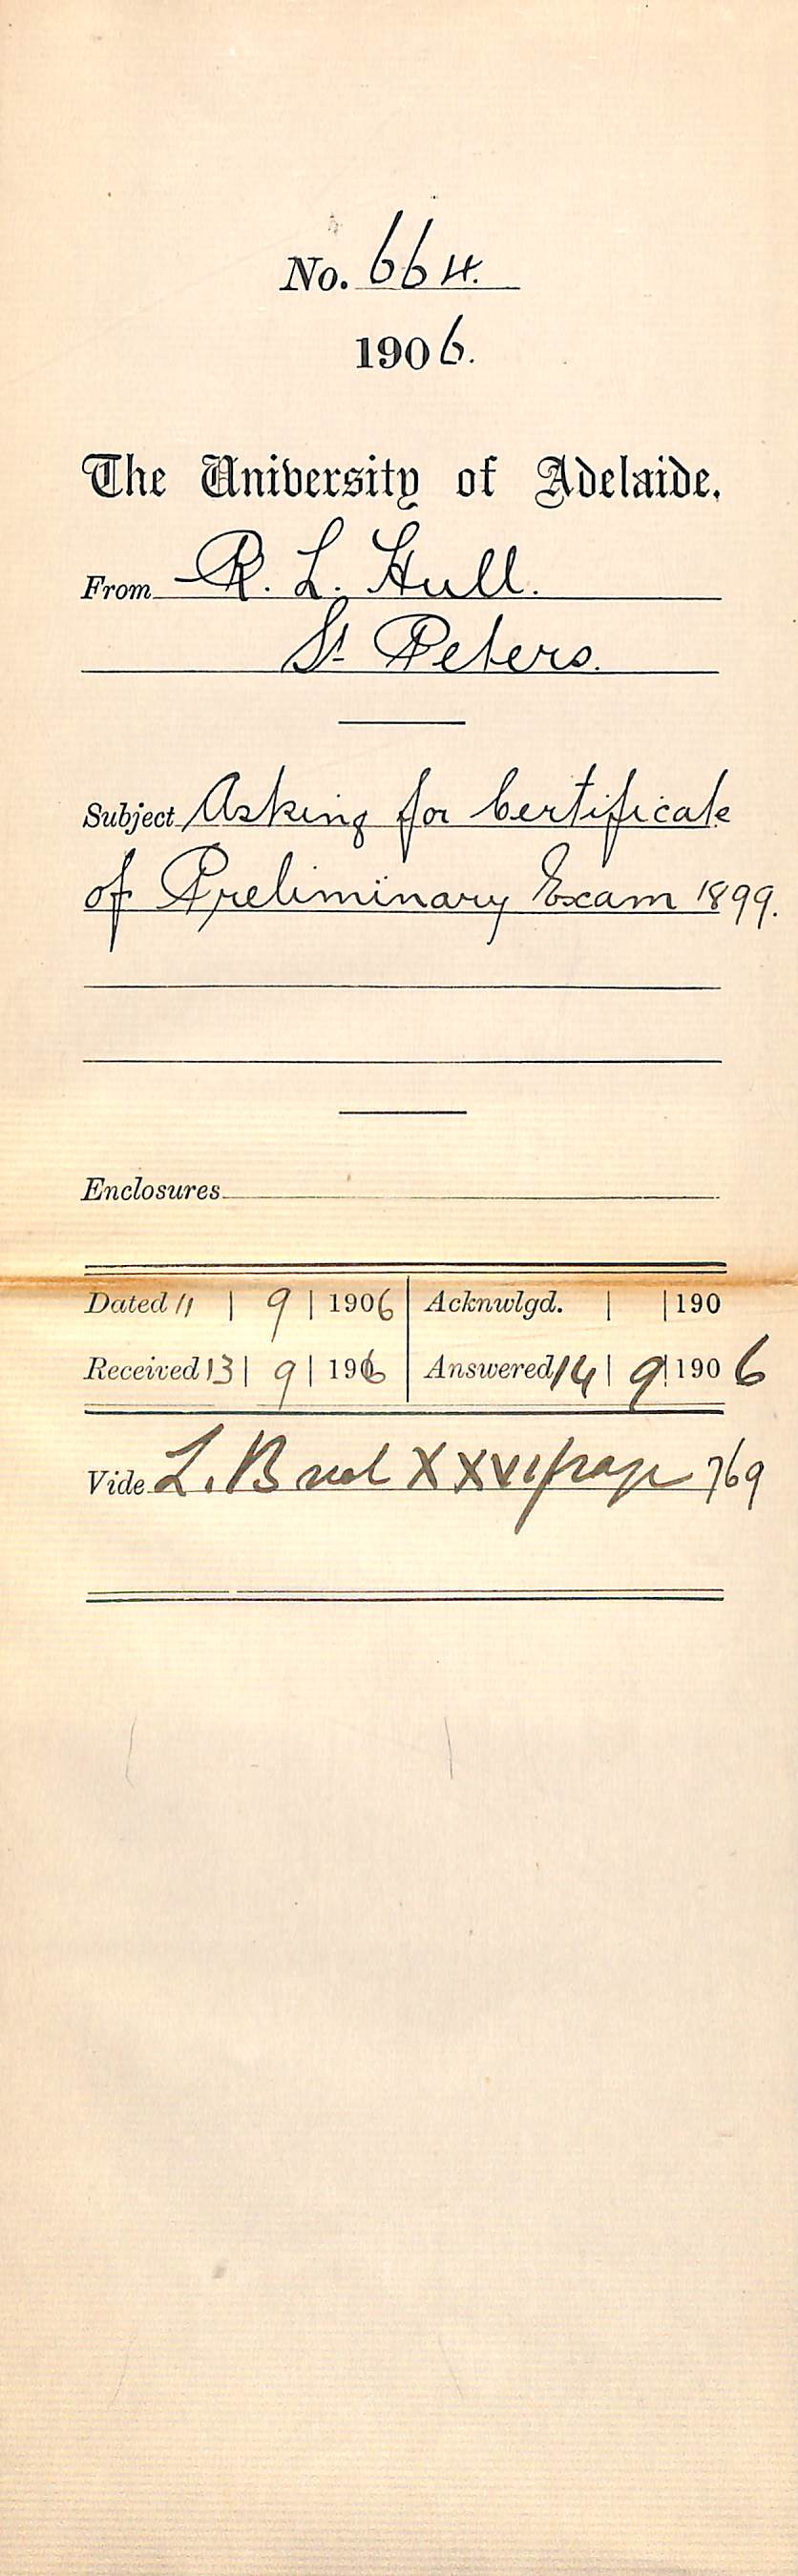 No. 664.
1906.
The University of Adelaide.
From R. L. Hull.
St. Peters.
Subject Asking for Certificate
of Preliminary Exam 1899.
Enclosures
Dated 11 | 9 | 1906 Acknwlgd. | | 190
Received 13 | 9 | 1906 Answered 14 | 9 | 1906
Vide L. B vol XXVI page 769